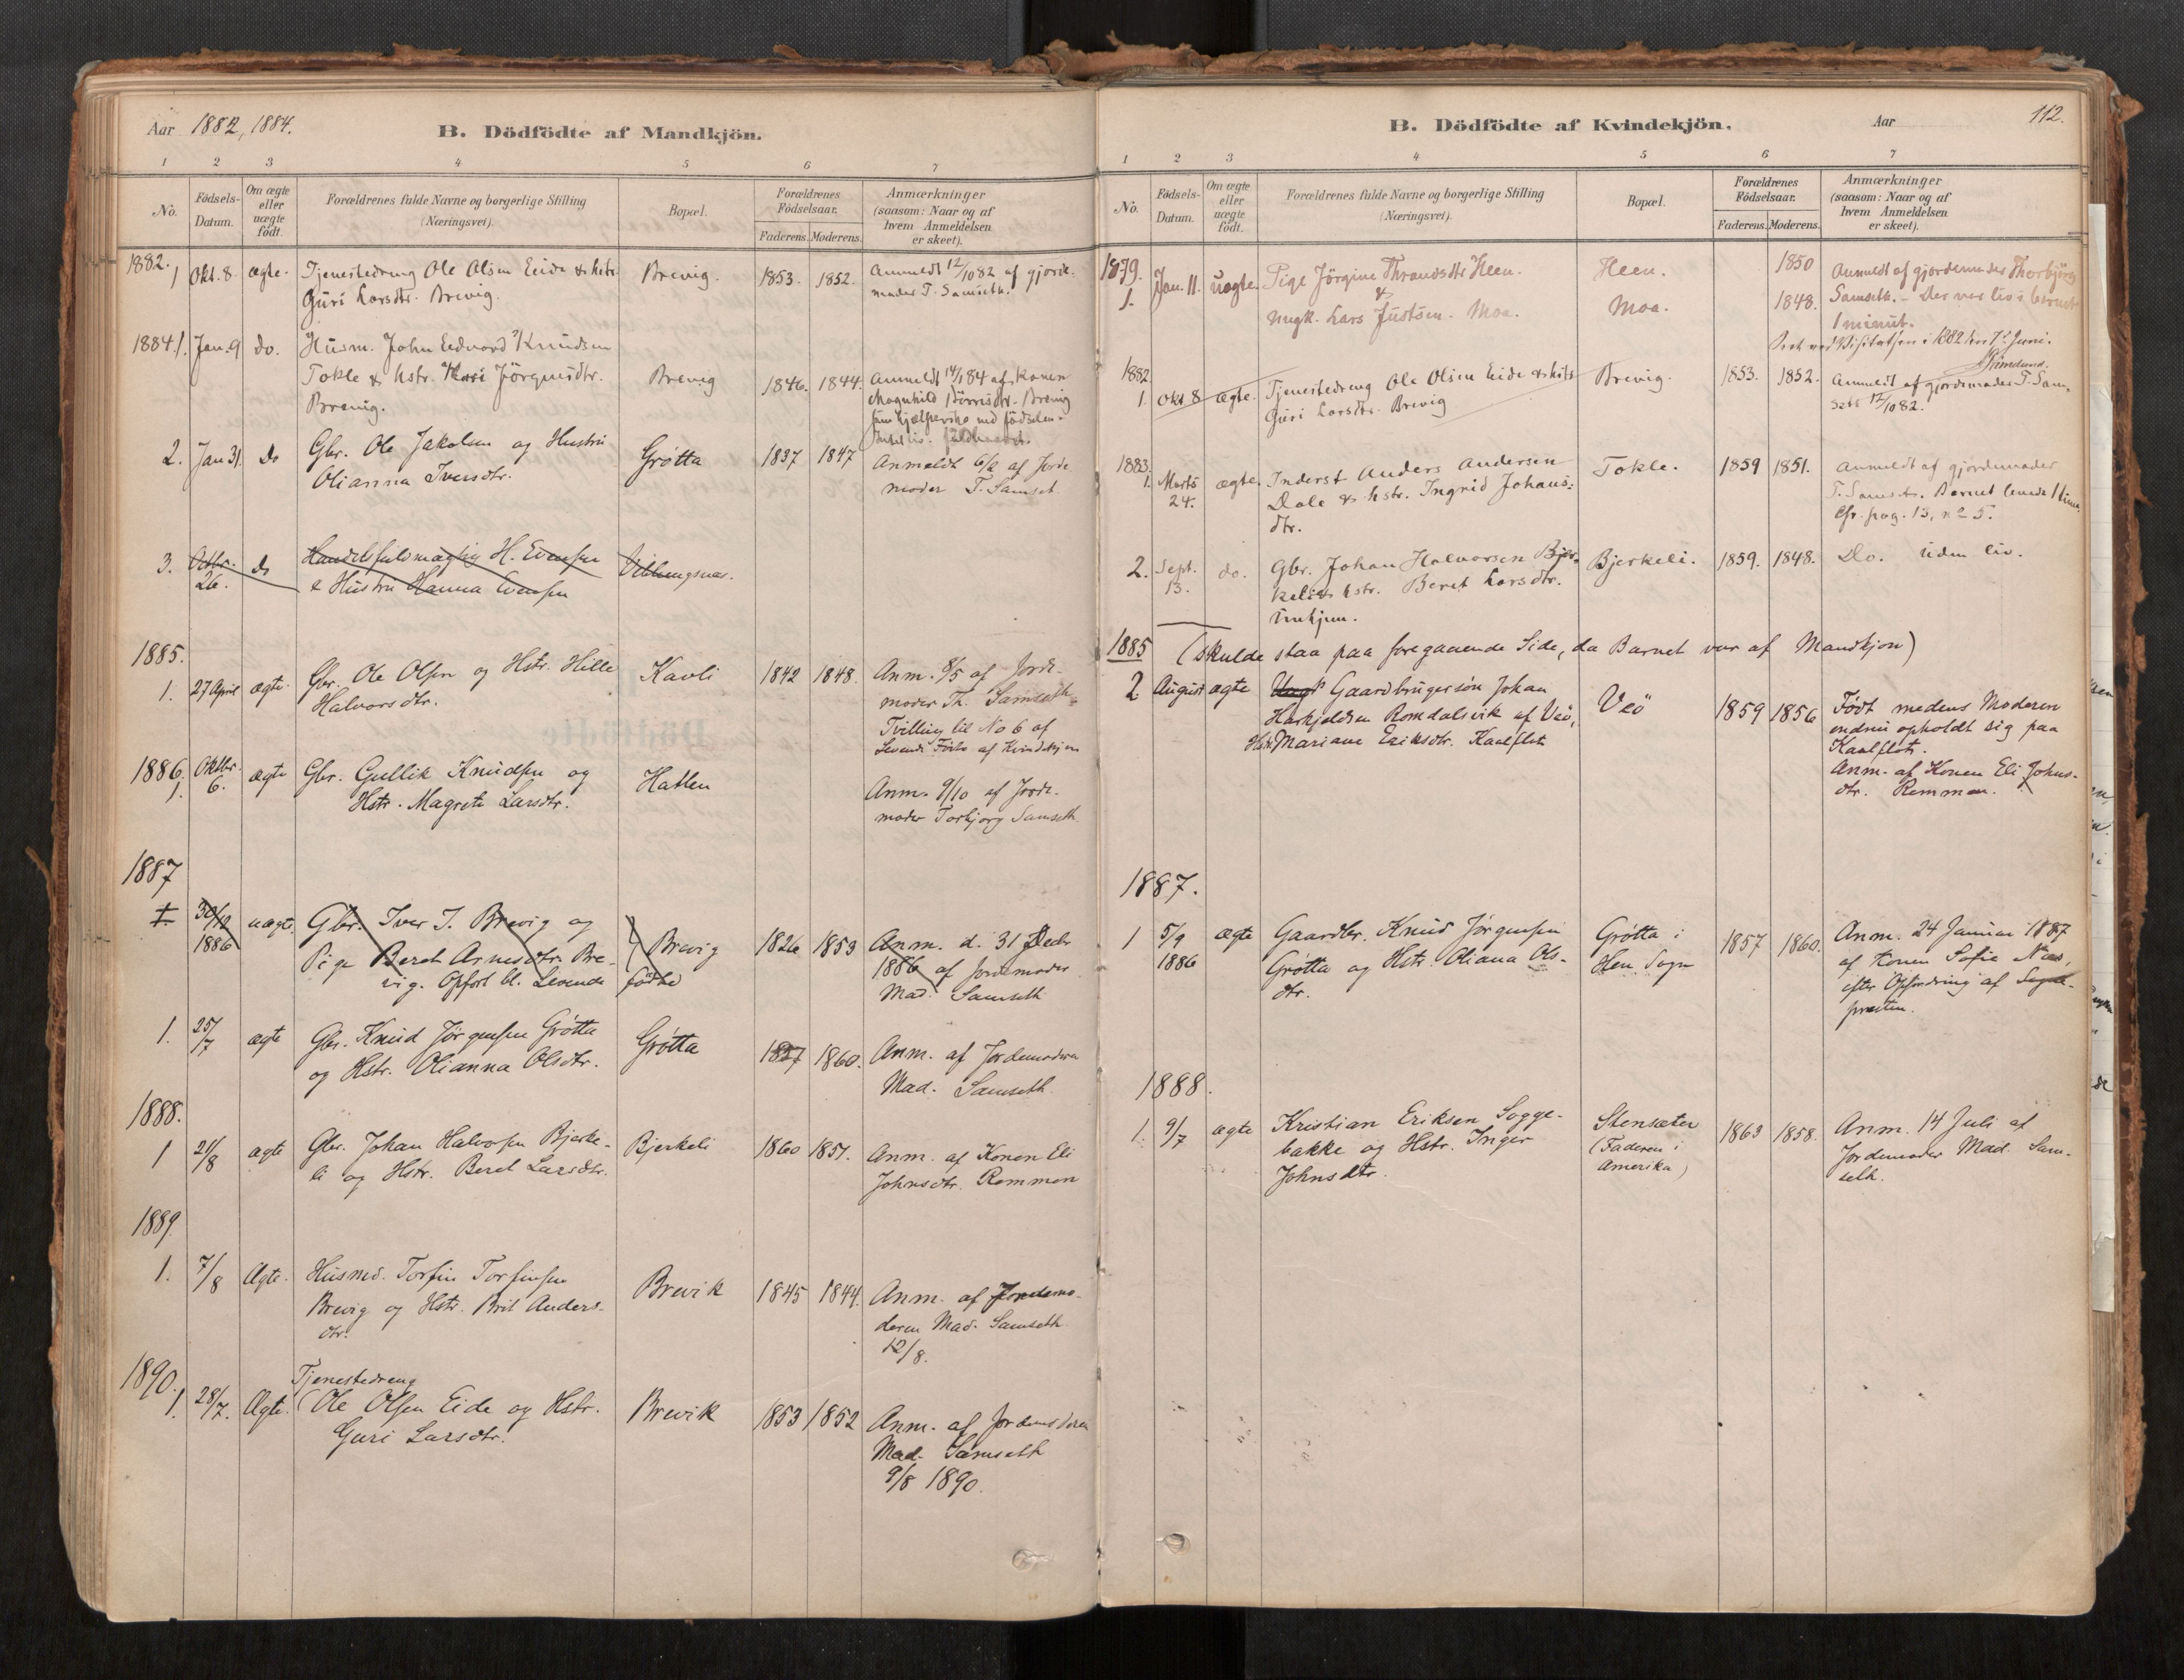 Aar 1882, 1884.
B. Dödfödte af Mandkjön.
1 2 3 4 5 6 7
No.
Födsels-
Datum.
Om ægte
eller
uægte
födt.
Forældrenes fulde Navne og borgerlige Stilling
(Næringsvei).
Bopæl.
Forældrenes
Födselsaar.
Faderens. Moderens.
Anmærkninger
(saasom: Naar og af
hvem Anmeldelsen
er skeet).
1882.
1 Okt. 8. ægte. Tjenestedreng Ole Olsen Eide & hstr.
Guri Larsdtr. Brevig.
Brevig. 1853. 1852.
Anmeldt 12/10 82 af gjorde-
moder T. Samseth.
1884. 1. Jan. 9 do. Husm. John Edvard Knudsen
Tokle & hstr. Jörgensdtr.
Brevig.
Brevig 1846. 1844.
Anmeldt 14/1 84 af Konen
Magnhild Brevig
som hjælperske ved födselen.
2. Jan 31. Do Gbr. Ole Jakobsen og Hustru
Olianna Iversdtr.
Grøtta 1837 1847
Anmeldt 6/2 af Jorde
moder T. Samset.
3. Octbr.
26. do Handelsfuldmægtig H. Evensen
& Hustru Hanna Evensen
Veblungsnæs.
1885.
1. 27 April ægte. Gbr. Ole Olsen og Hstr. Hille
Halvorsdtr.
Kavli 1842 1848.
Anm. 8/5 af Jorde-
moder Th. Samseth.
Tvilling til No 6 af
Levende Fødte af Kvindekjøn
1886.
1. Oktbr.
6. ægte Gbr. Gullik Knudsen og
Hstr. Magrete Larsdtr.
Hatlen
Anm. 9/10 af Jorde-
moder Torbjørg Samseth
1887
1. 30/12
1886 uægte. Gbr. Iver I. Brevig og
Pige Beret Arnesdtr. Bre-
vig. Opført bl. Levende fødte
Brevig 1826 1853
Anm. d. 31 Decbr
1886 af Jordemoder
Mad. Samseth
1. 25/7 ægte Gbr. Knud Jørgensen Grøtta
og Hstr. Olianna Olsdtr.
Grøtta 1857 1860.
Anm. af Jordemoderen
Mad. Samseth.
1888.
1 21/8 ægte Gbr. Johan Halvorsen Bjerke-
li og Hstr. Beret Larsdtr.
Bjerkeli 1860 1851.
Anm. af Konen Eli
Johnsdtr. Remmen
1889.
1. 7/8 Ægte. Husmd. Torfin Torfinsen
Brevig og Hstr. Brit Anders-
dtr.
Brevik 1845 1844.
Anm. af Jordemo-
deren Mad. Samseth
12/8.
1890.
Tjenestedreng
1. 28/7. Ægte. Ole Olsen Eide og Hstr.
Guri Larsdtr.
Brevik 1853 1852
Anm. af Jordemoderen
Mad. Samseth
9/8 1890.
B. Dödfödte af Kvindekjön.
Aar
112.
1 2 3 4 5 6 7
No.
Födsels-
Datum.
Om ægte
eller
uægte
födt.
Forældrenes fulde Navne og borgerlige Stilling
(Næringsvei).
Bopæl.
Forældrenes
Födselsaar.
Faderens. Moderens.
Anmærkninger
(saasom: Naar og af
hvem Anmeldelsen
er skeet).
1879.
1. Jan. 11. uægte. Pige Jörgine Thrandsdtr Heen.
&
Ungk. Lars Justsen. Moa.
Heen.
Moa.
1850
1848.
Anmeldt af gjordemoder Thorbjörg
Samseth. - Der var liv i barnet
1 minut.
1882.
1. Okt. 8 ægte. Tjenestedreng Ole Olsen Eide & hstr
Guri Larsdtr. Brevig
Brevig. 1853. 1852.
Anmeldt af gjordemoder T. Sam-
seth 12/10 82.
1883.
1. Marts
24. ægte. Inderst Anders Andersen
Dale & hstr. Ingrid Johans-
dtr.
Tokle. 1859 1851.
Anmeldt af gjordemoder
T. Samseth. Barnet levede 1 time.
Cfr. pag. 13, n 25.
2. Sept.
13. do. Gbr. Johan Halvorsen Bjer-
keli & hstr. Beret Larsdtr.
Bjerkeli. 1859. 1848.
Do. uden liv.
1885 (skulde staa paa foregaaende Side, da Barnet var af Mandkjøn)
2. August ægte Gaardbrugersøn Johan
Romdalsvik af Veö,
Hstr. Mariane Eriksdtr. Kaalflot
Veö 1859 1856
Født medens Moderen
endnu opholdt sig paa
Kaalflot.
Anm. af Konen Eli Johns-
dtr. Remmen.
1887.
1 5/9
1886 ægte Gaardbr. Knud Jørgensen
Grøtta og Hstr. Oliana Ols-
dtr.
Grøtta i
Hen Sogn
1857 1860.
Anm. 24 Januar 1887
af Konen Sofie Næs,
efter Opfordring af Sogne-
præsten.
1888.
1. 9/7 ægte Kristian Eriksen Sogge-
bakke og Hstr. Inger
Johnsdtr.
Stensæter
(Faderen i
Amerika)
1863 1858.
Anm. 14 Juli af
Jordemoder Mad. Sam-
seth.